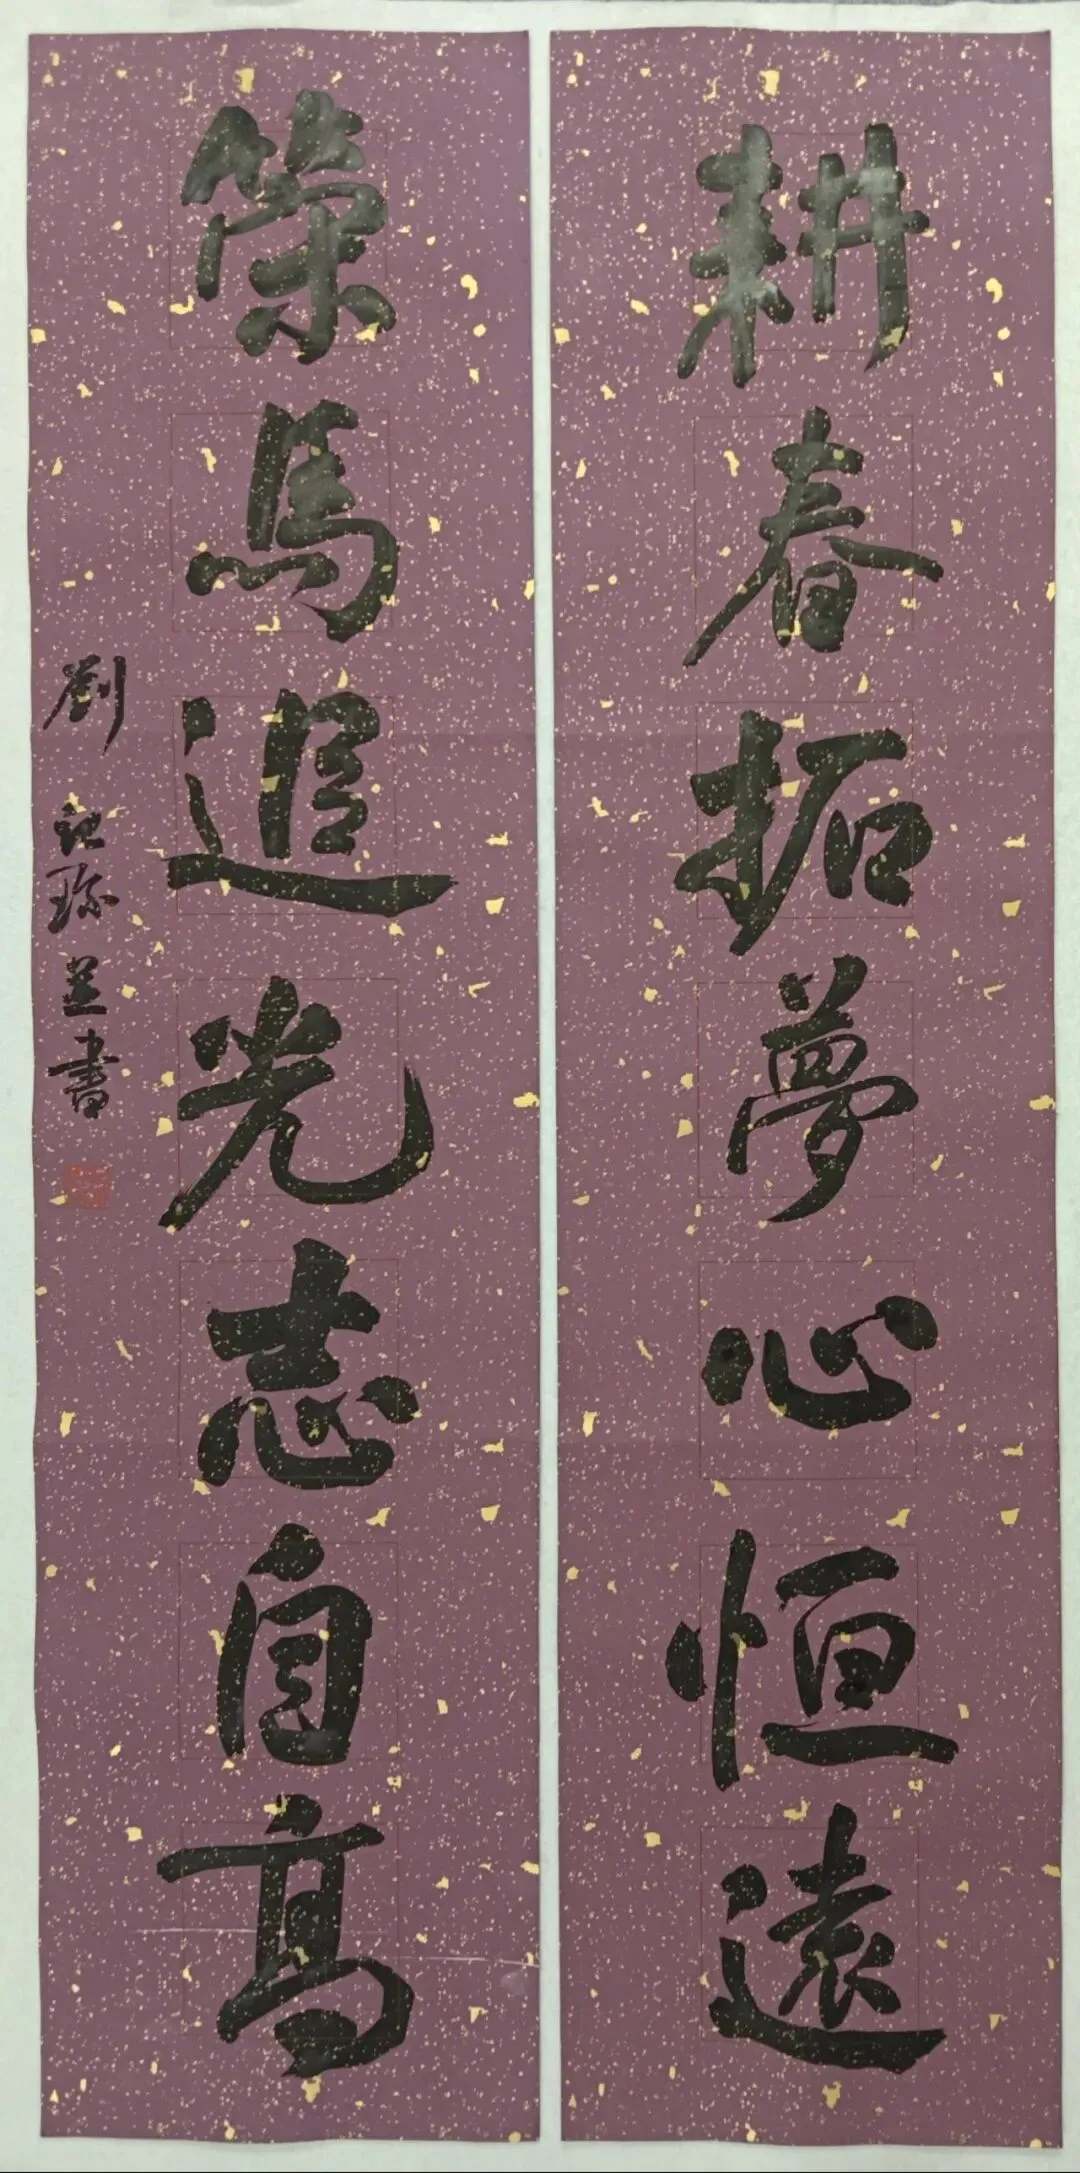 耕春拓夢心恒遠
策馬追光志自高
劉 並書